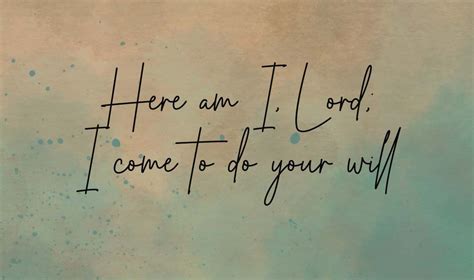 Here am I, Lord;
I come to do your will